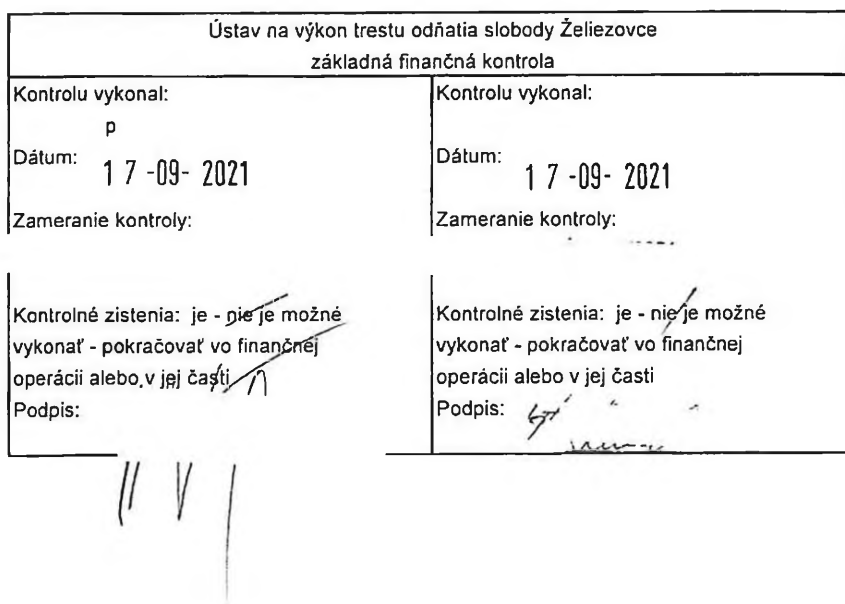 Ústav na výkon trestu odňatia slobody Želiezovce
základná finančná kontrola
Kontrolu vykonal:
p
Dátum: 17 -09- 2021
Zameranie kontroly:
Kontrolné zistenia: je - nie je možné
vykonať - pokračovať vo finančnej
operácii alebo v jej časti
Podpis:
Kontrolu vykonal:
Dátum: 17 -09- 2021
Zameranie kontroly:
Kontrolné zistenia: je - nie je možné
vykonať - pokračovať vo finančnej
operácii alebo v jej časti
Podpis: